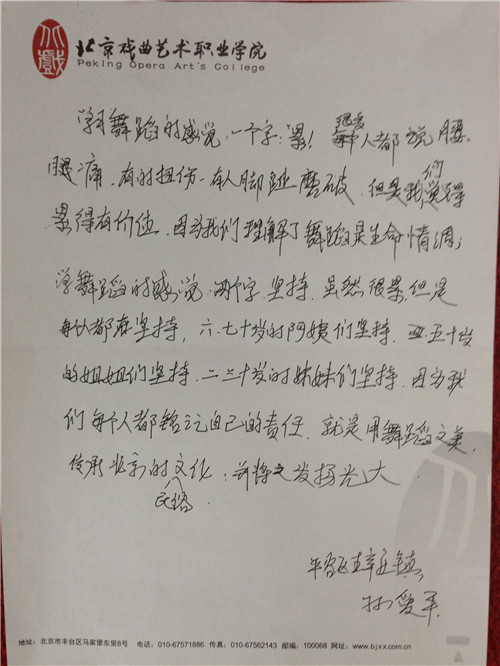 北京戏曲艺术职业学院
Peking Opera Art's College
学习舞蹈的感觉，一个字：累！很多人都说，腰、
腿痛，有的扭伤，有人脚趾磨破，但是我们觉得
累得有价值，因为我们理解了舞蹈是生命情调；
学舞蹈的感觉，两个字，坚持，虽然很累，但是
每人都在坚持，六、七十岁的阿姨们坚持，五十岁
的姐姐们坚持，二三十岁的妹妹们坚持，因为我
们每个人都铭记自己的责任，就是用舞蹈之美，
传承北京的民俗文化，并将之发扬光大
镇
孙爱军
地址：北京市丰台区马家堡东里8号 电话：010-67571886 传真：010-67562143 邮编：100068 网址：www.bjxx.com.cn